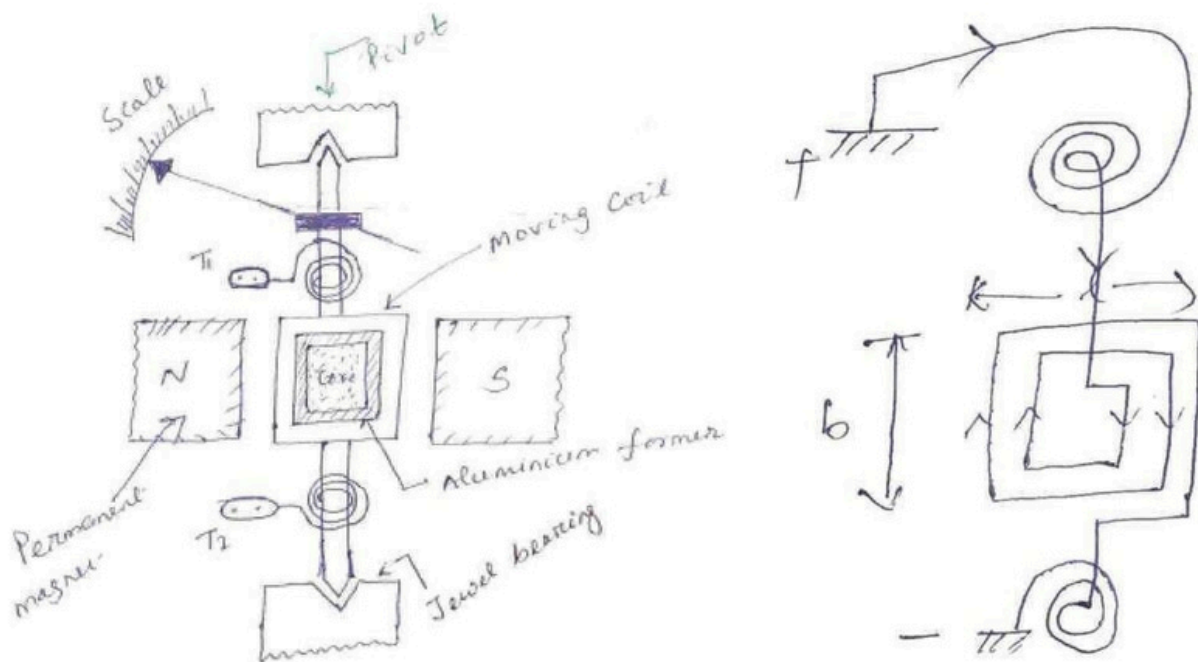 Pivot
Scale
Moving Coil
T1
N
Core
S
Aluminium former
Permanent
magnet
T2
Jewel bearing
+
b
-